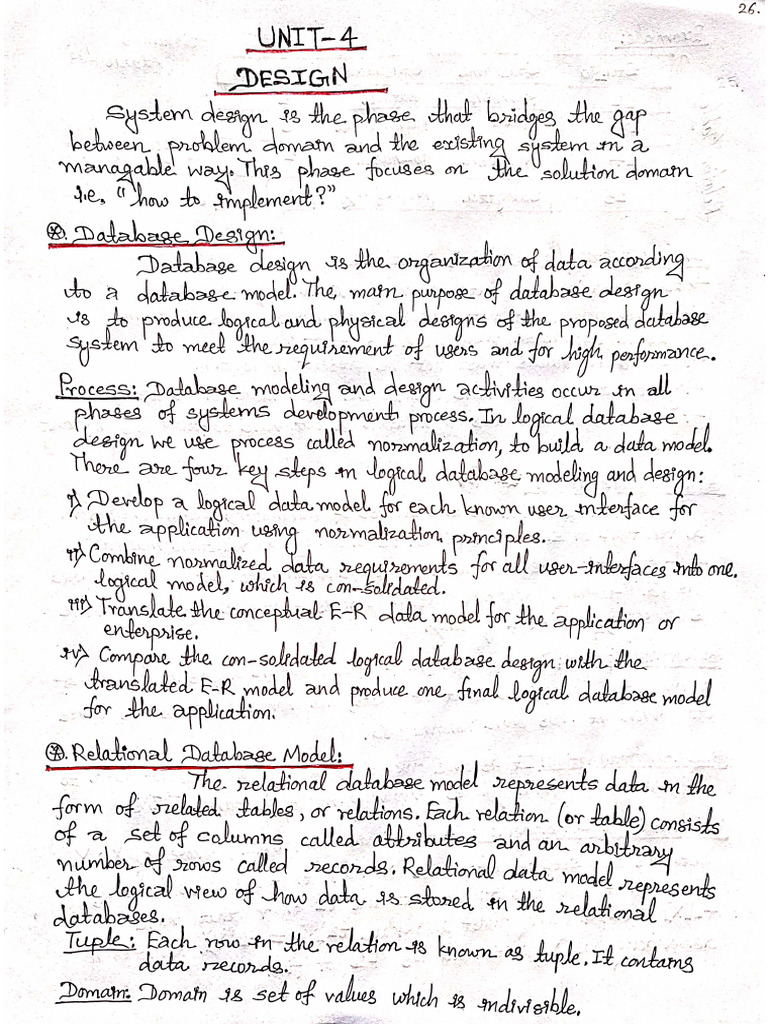 26.
UNIT-4
DESIGN
System design is the phase that bridges the gap
between problem domain and the existing system in a
managable way. This phase focuses on the solution domain
i.e. "how to implement?"
⊛. Database Design:
Database design is the organization of data according
to a database model. The main purpose of database design
is to produce logical and physical designs of the proposed database
system to meet the requirement of users and for high performance.
Process: Database modeling and design activities occur in all
phases of systems development process. In logical database
design we use process called normalization, to build a data model.
There are four key steps in logical database modeling and design:
i) Develop a logical data model for each known user interface for
the application using normalization principles.
ii) Combine normalized data requirements for all user-interfaces into one
logical model, which is con-solidated.
iii) Translate the conceptual E-R data model for the application or
enterprise.
iv) Compare the con-solidated logical database design with the
translated E-R model and produce one final logical database model
for the application.
⊛. Relational Database Model:
The relational database model represents data in the
form of related tables, or relations. Each relation (or table) consists
of a set of columns called attributes and an arbitrary
number of rows called records. Relational data model represents
the logical view of how data is stored in the relational
databases.
Tuple: Each row in the relation is known as tuple. It contains
data records.
Domain: Domain is set of values which is indivisible.